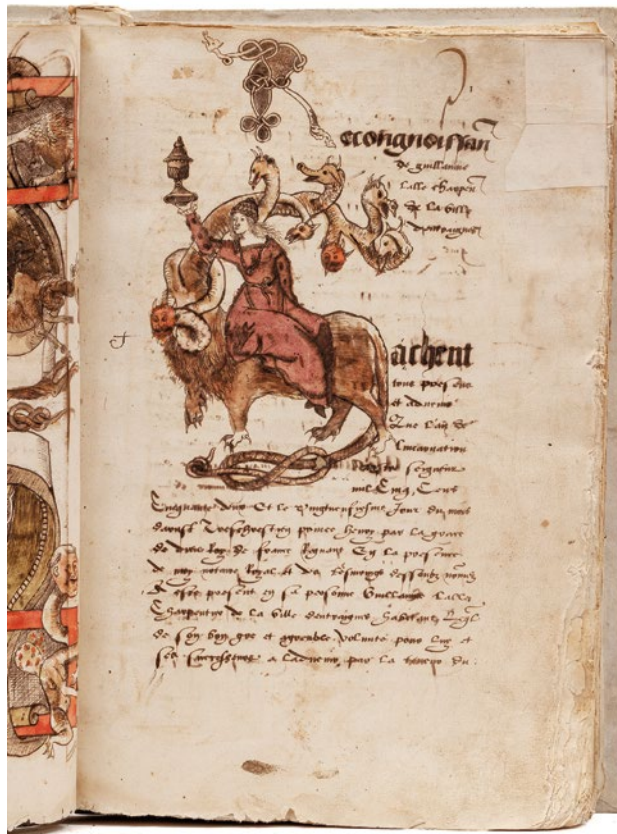 econgnoissan
de guillaume
Lalle charpen
de la ville
dentraigues
achent
tous presens
et advenir
Que l'an de
l'incarnation
seigneur
mil Cinq Cens
Cinquante deux Et le vingtunsiesme Jour du mois
daoust Treschrestien prince henry par la grace
de dieu Roy de france Regnant En la presence
de moy notaire Royal et des tesmoings dessoubz nommes
present en sa personne Guillaume Lalle
Charpentier de la ville dentraigues habitant
de son bon gre et agreable volunte pour luy et
ses a ladvenir par la teneur du